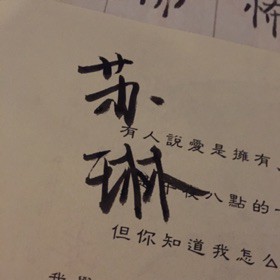 苏
琳
有人說愛是擁有、
夜八點的
但你知道我怎么
我